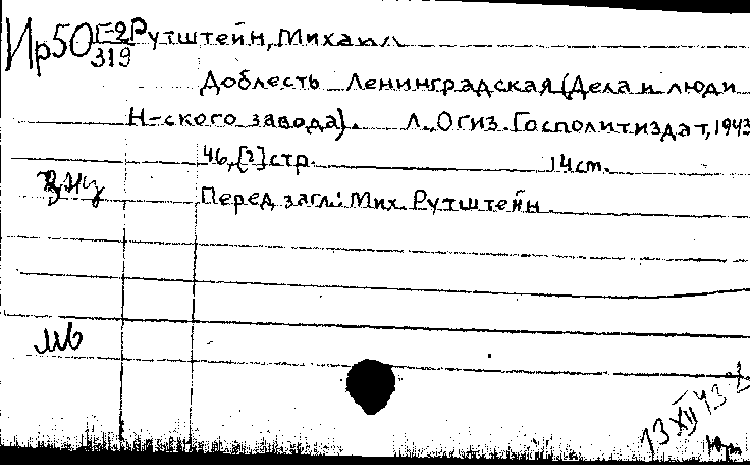 Ир50 Г-2
319
Рутштейн, Михаил
Доблесть Ленинградская (Дела и люди
Н-ского завода). Л., Огиз. Госполитиздат, 1943
46, [2] стр. 14 см.
Перед загл.: Мих. Рутштейн
13 XII 43